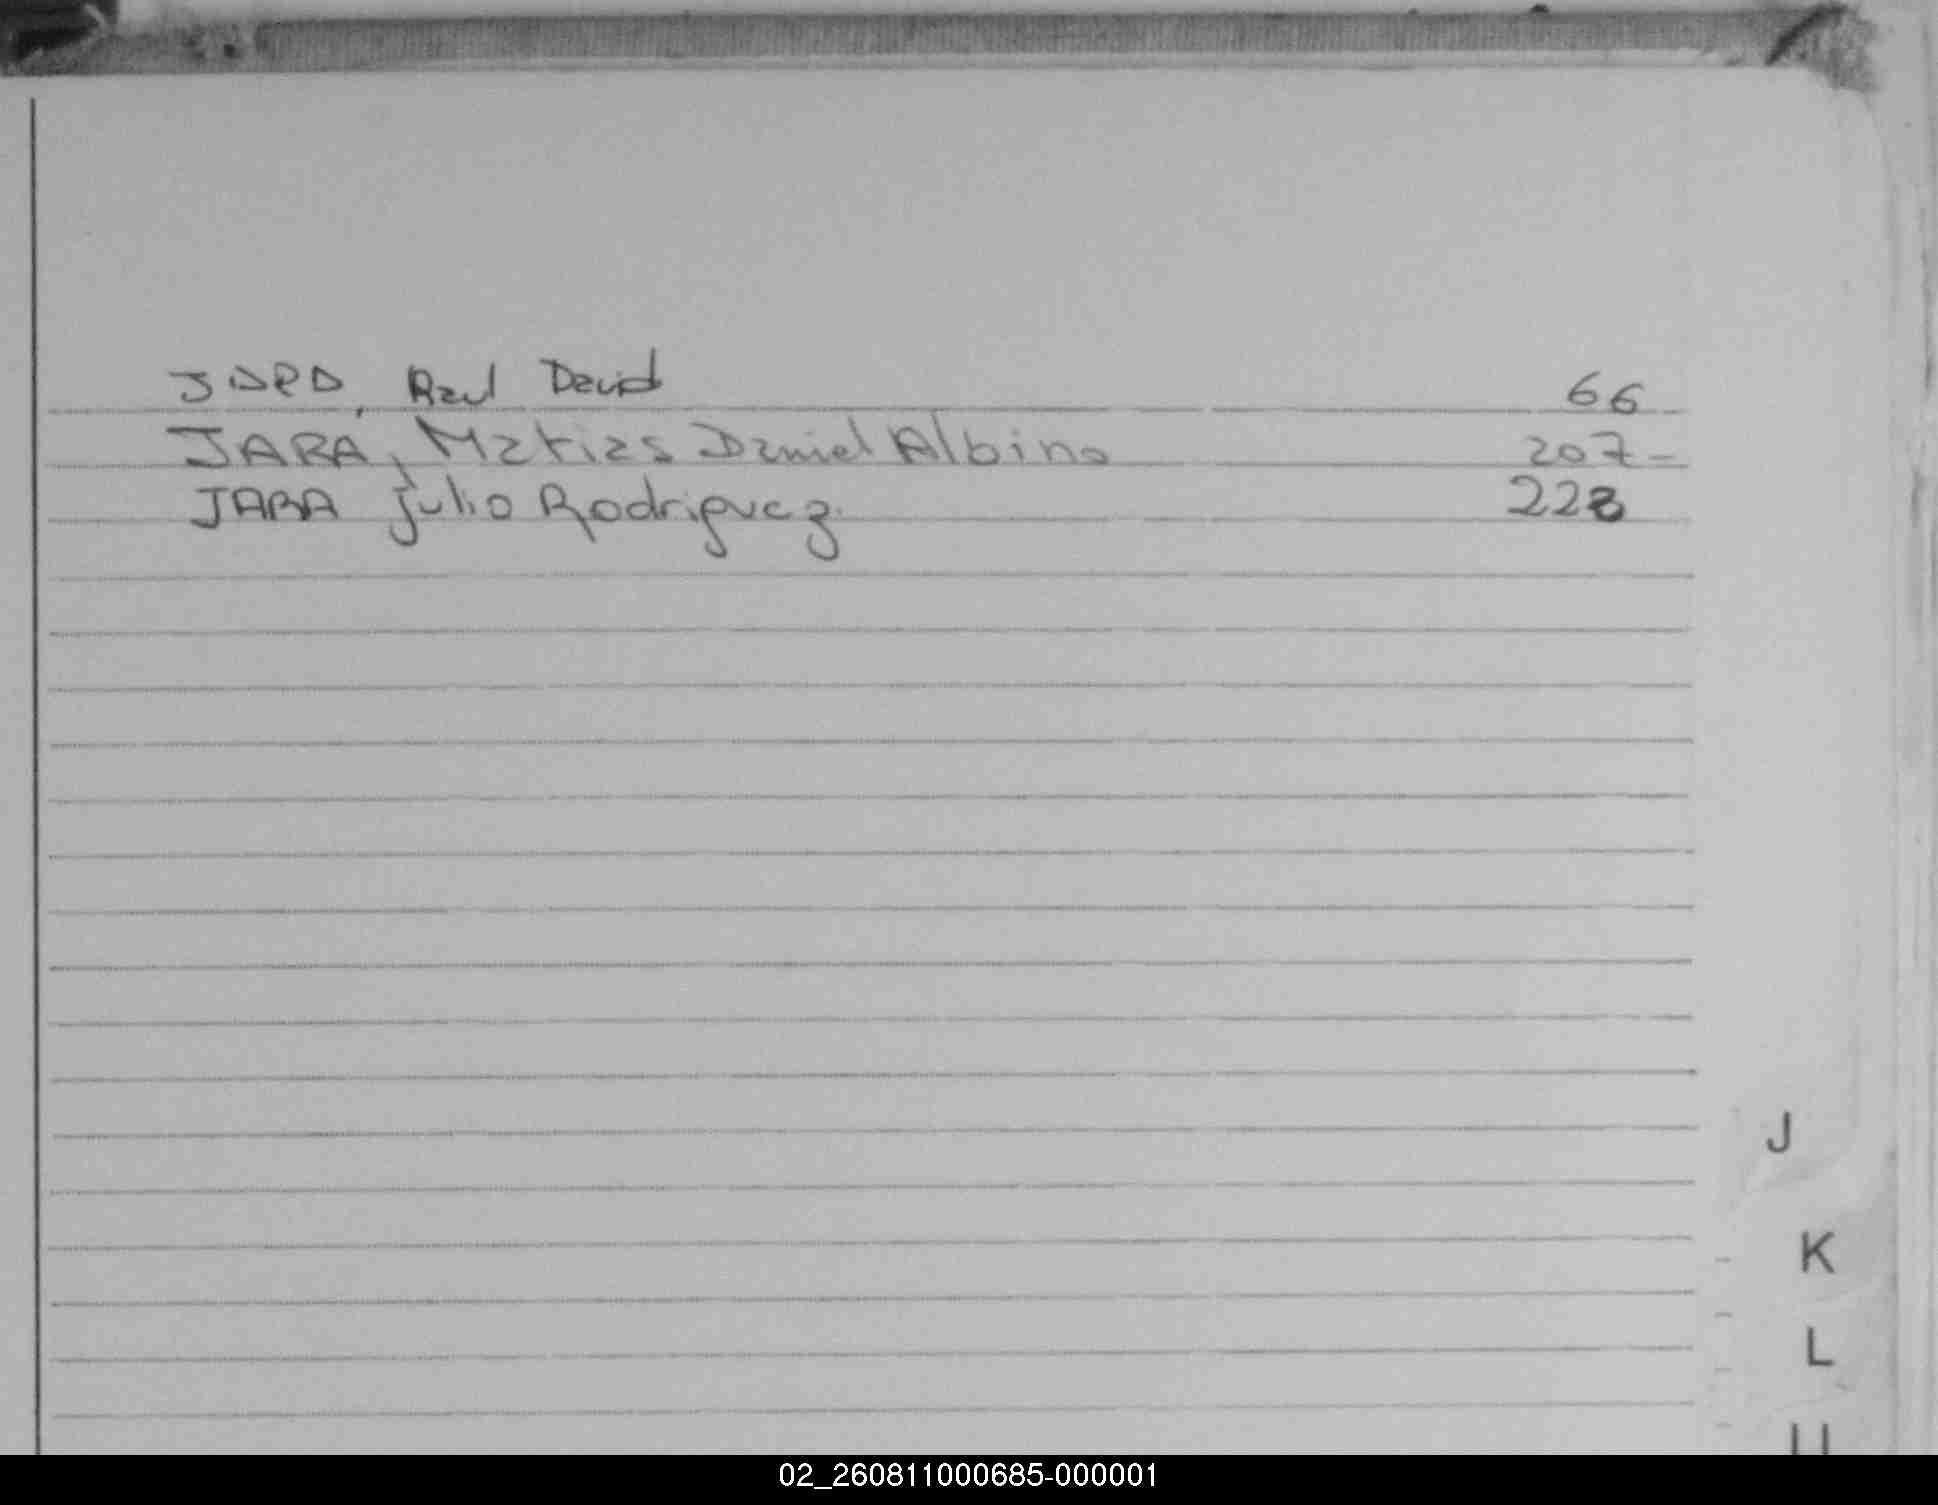 JARA, Raul David 66
JARA, Matias Daniel Albino 207-
JARA Julio Rodriguez. 228
J
K
L
02_260811000685-000001